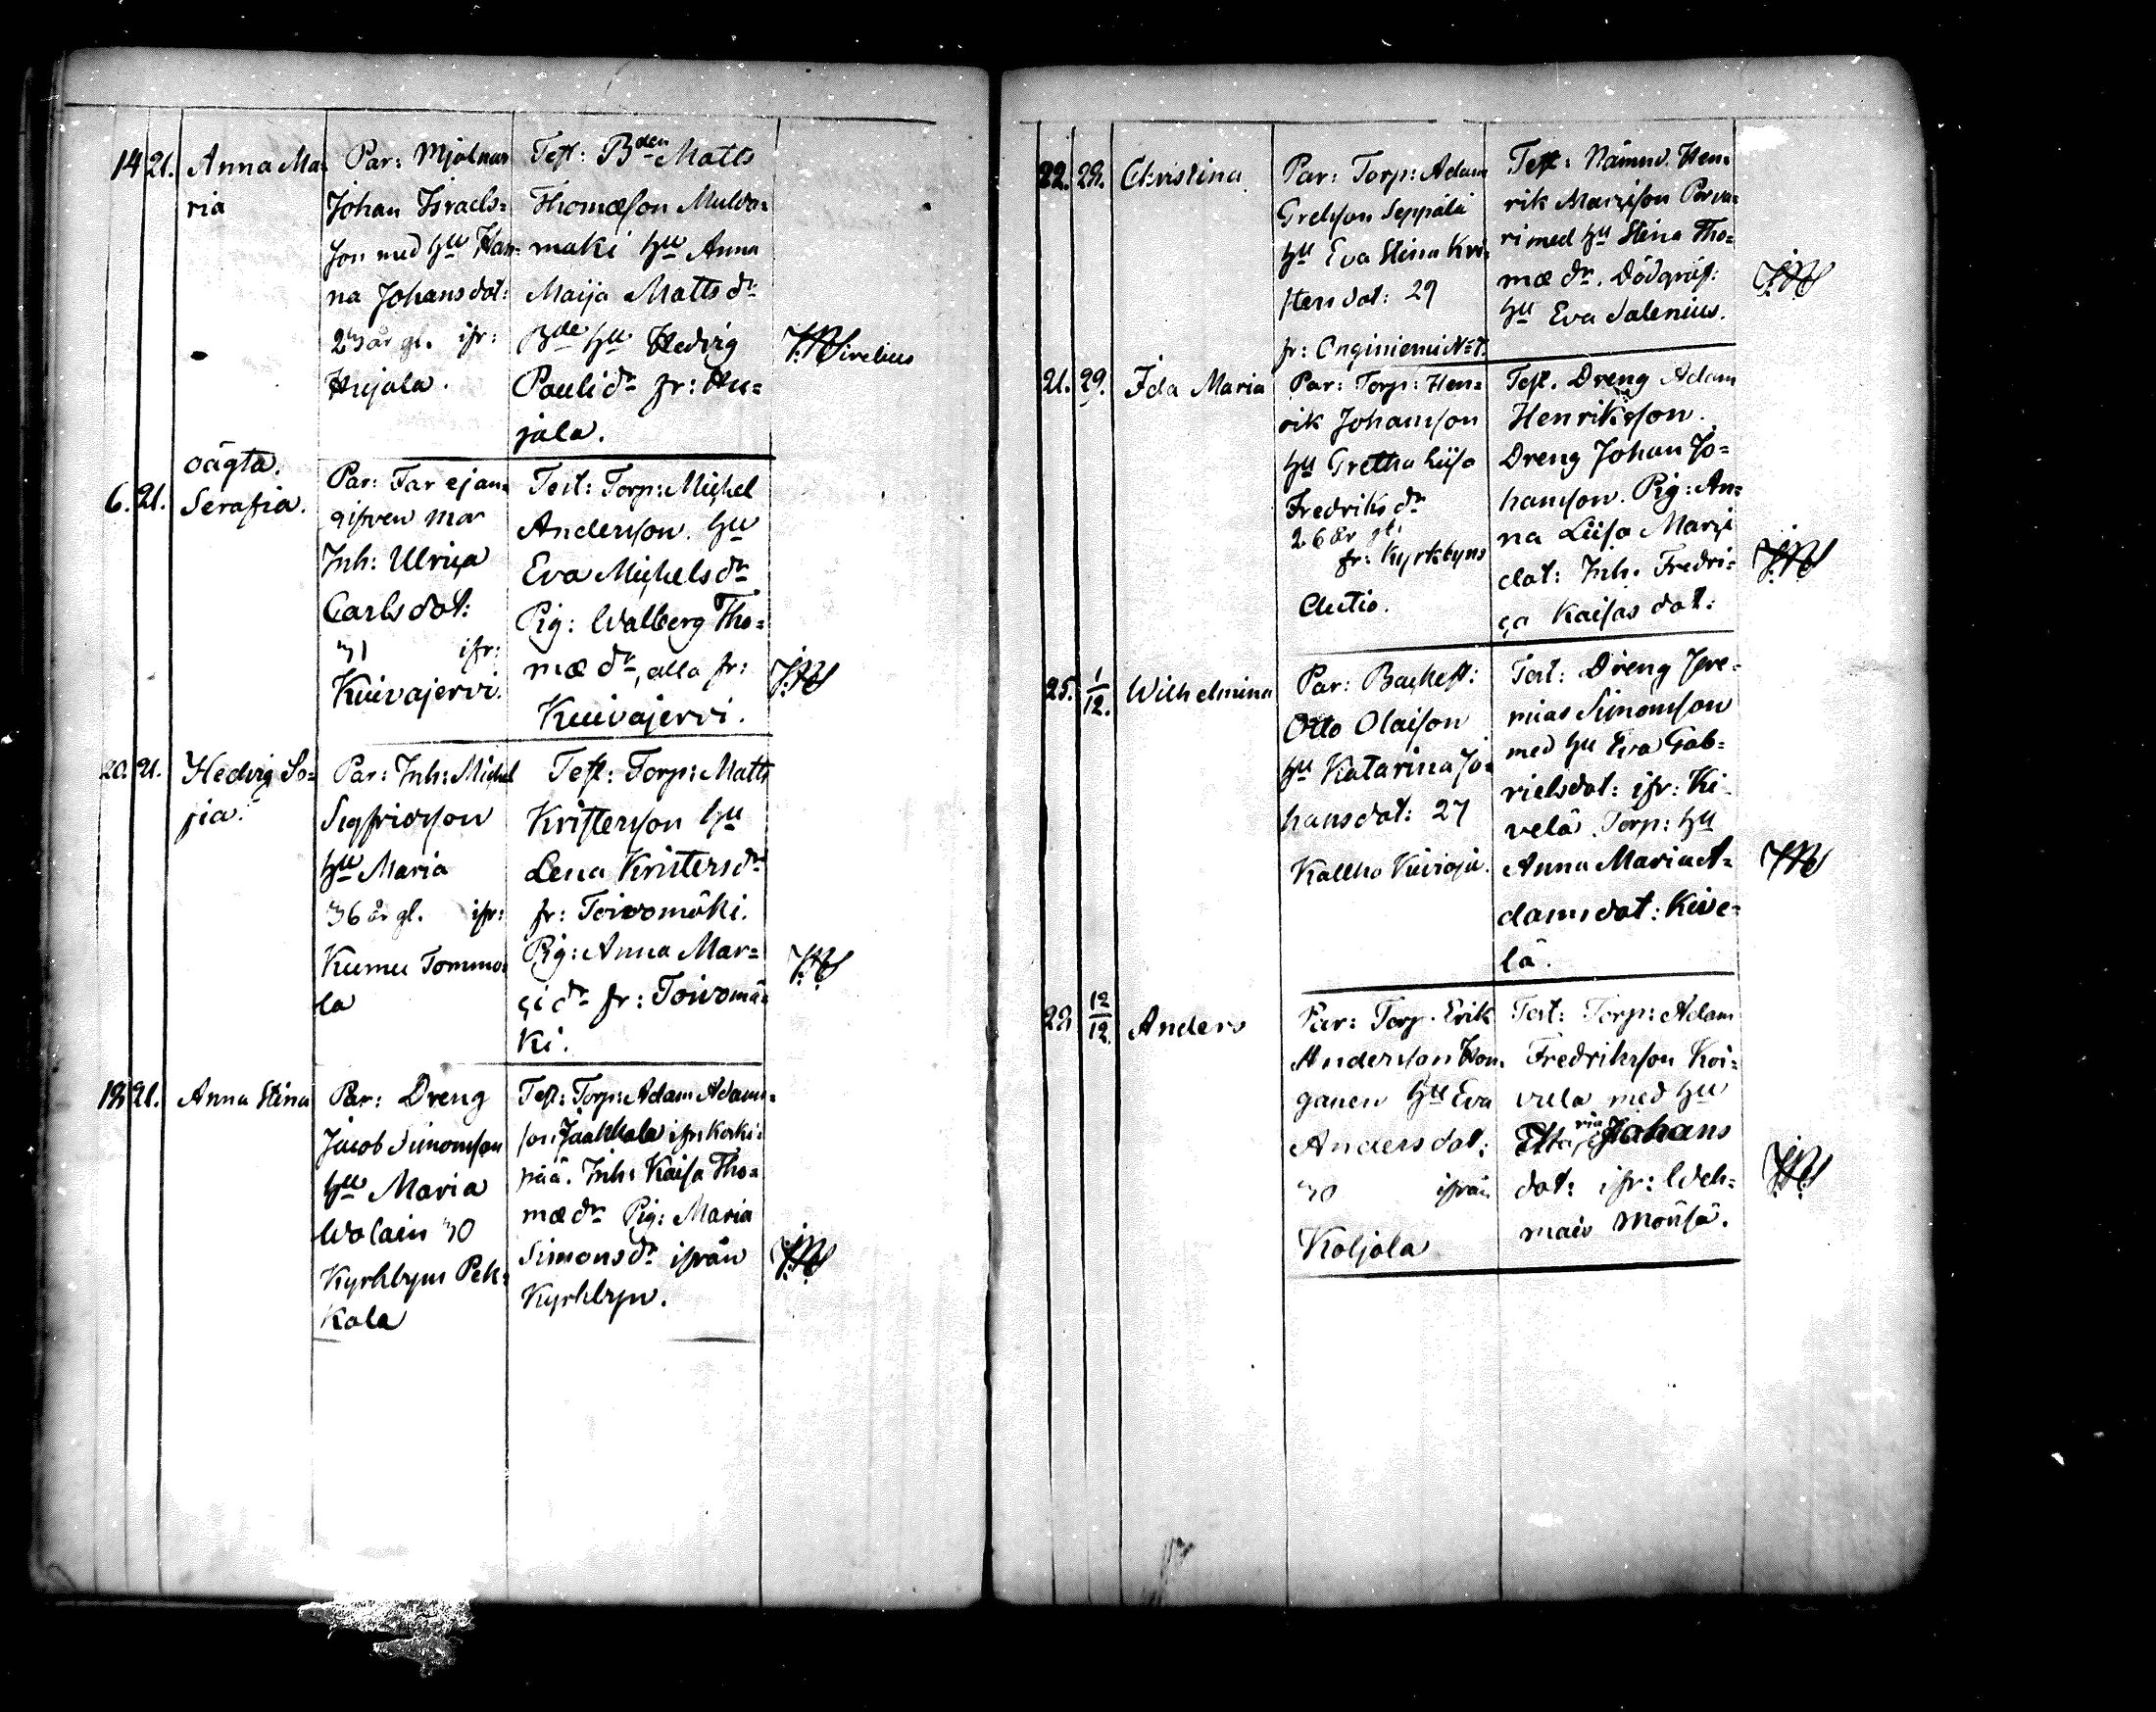 14 21. Anna Ma=
ria
Par: Mjölnar
Johan Israels=
son med hu Han=
na Johansdot:
23 år gl. ifr:
Hujala.
Test: Bden Matts
Thomæson Mulda=
maki hu Anna
Maija Matts dr
Bde hu Hedvig
Pauli dr fr: Hu=
jala.
oägta.
6. 21. Serafia.
Par: Far ej an=
gifven mor
Inh: Ulrica
Carlsdot:
31 ifr:
Kuivajervi.
Test: Torp: Michel
Anderson. hu
Eva Michels dr
Pig: Walberg Tho=
mæ dr, alla fr:
Kuivajervi.
20. 21. Hedvig So=
fia.
Par: Inh: Michel
Sigfridson
hu Maria
36 år gl. ifr:
Kumu Tommo=
la
Test: Torp: Matts
Kristerson hu
Lena Kristers dr
fr: Toivomäki.
Pig: Anna Mar=
çi dr fr: Toivomä=
ki.
18 21. Anna Stina
Par: Dreng
Jacob Simonson
hu Maria
Walain 30
Kyrkbyns Pek=
kala
Test: Torp: Adam Adam=
son Jaakkola ifr: Koski=
pää. Inh: Kaisa Tho=
mæ dr Pig: Maria
Simons dr ifrån
Kyrkbyn.
22. 28. Christina
Par: Torp: Adam
Grelsson Seppälä
hu Eva Stina Kri=
stersdot: 29
fr: Onginiemi No 7.
Test: Nämnd. Hen=
rik Marçison Porva=
ri med hu Stina Tho=
mæ dr. Dödgräf:
hu Eva Salenius.
21. 29. Ida Maria
Par: Torp: Hen=
rik Johanson
hu Gretha Liisa
Fredriks dr
26 år gl:
fr: Kyrkbyns
Autio.
Test. Dreng Adam
Henrikson.
Dreng Johan Jo=
hanson. Pig: An=
na Liisa Marçi
dot: Inh. Fredri=
ça Kaisas dot:
25. 1/12. Wilhelmina
Par: Backest:
Otto Olaison
hu Katarina Jo=
hansdot: 27
Kallho Kuivoja.
Test: Dreng Jere=
mias Simonson
med hu Eva Gab=
rielsdot: ifr: Ki=
velä. Torp: hu
Anna Maria A=
damsdot: Kive=
lä.
28 12/12. Anders
Par: Torp. Erik
Anderson Kon=
ganen hu Eva
Andersdot:
30 ifrån
Koljola
Test: Torp: Adam
Fredrikson Koi=
vula med hu
Johans
dot: ifr: Weh=
mais Mönsä.